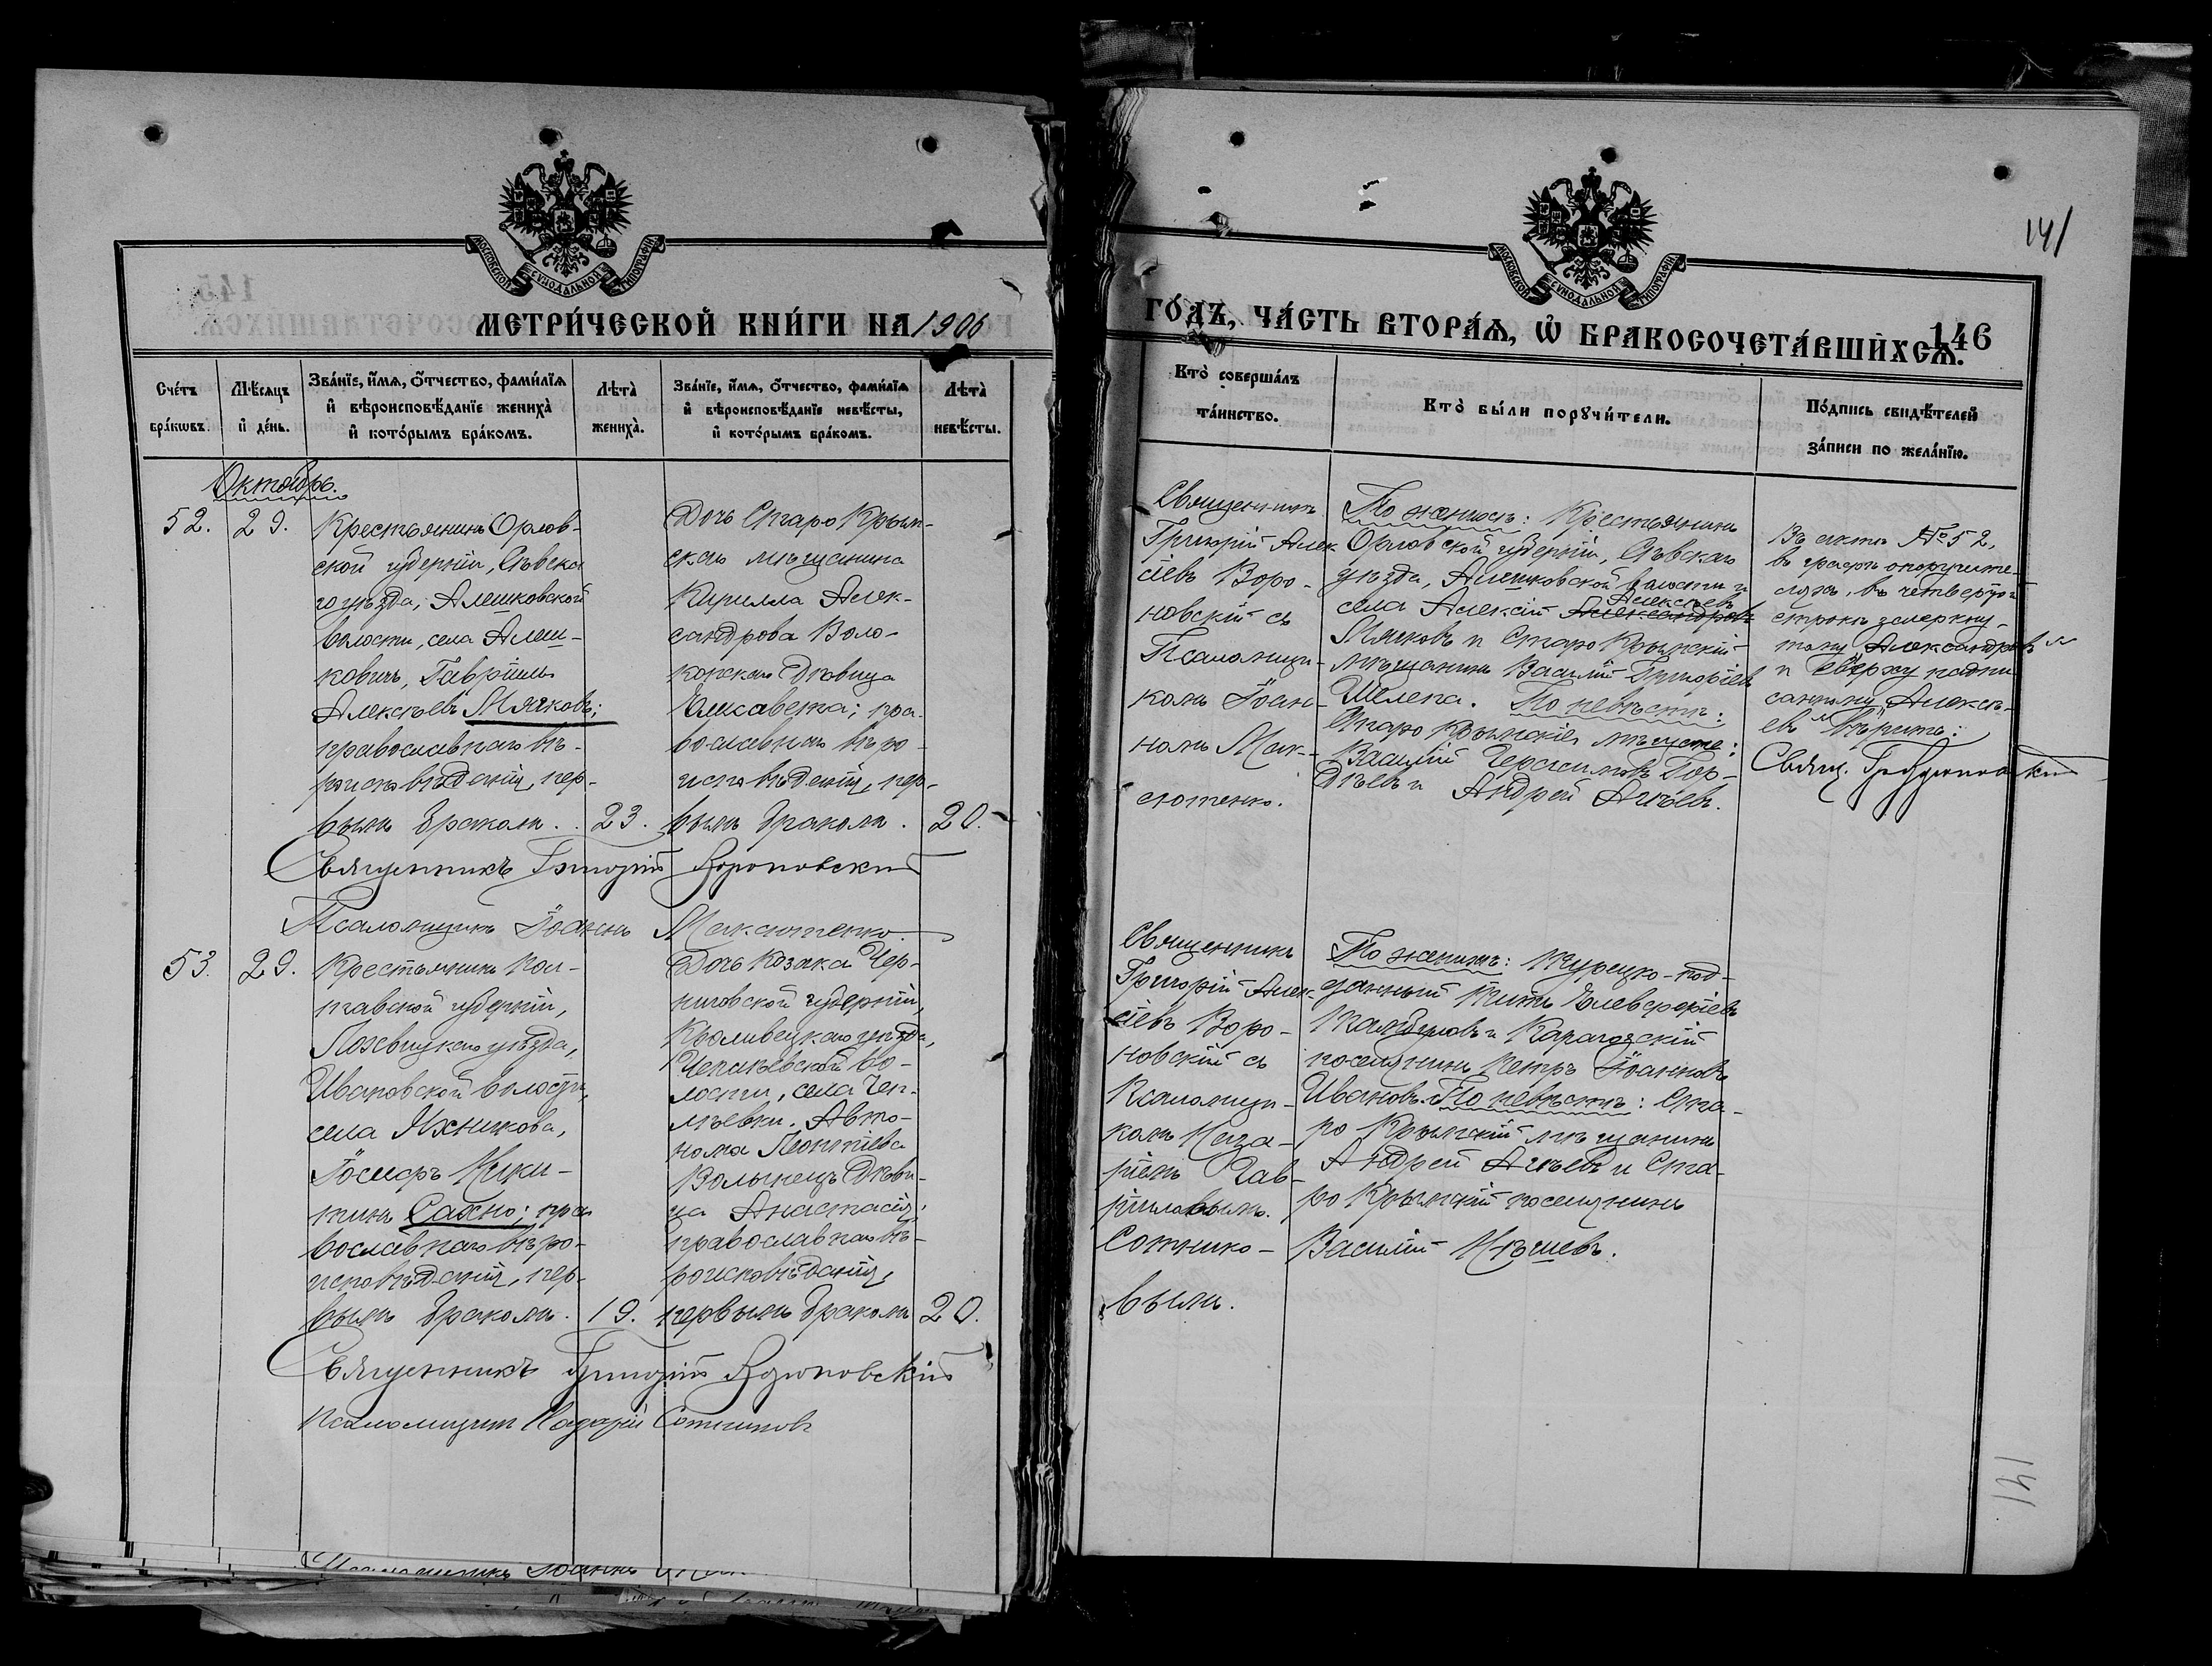 МОСКОВСКОЙ СѴНОДАЛЬНОЙ ТИПОГРАФІИ
МЕТРИ́ЧЕСКОЙ КНИ́ГИ НА 1906
Сче́тъ бра́кѡвъ.
Мѣ́сяцъ и҆ де́нь.
Зва́нїе, и҆́мѧ, ѻ҆́тчество, фами́лїѧ и҆ вѣроисповѣ́данїе жениха̀ и҆ кото́рымъ бра́комъ.
Лѣта̀ жениха̀.
Зва́нїе, и҆́мѧ, ѻ҆́тчество, фами́лїѧ и҆ вѣроисповѣ́данїе невѣ́сты, и҆ кото́рымъ бра́комъ.
Лѣта̀ невѣ́сты.
Октябрь.
52.
29.
Крестьянинъ Орлов-
ской губерніи, Сѣвска
го уѣзда, Алешковской
волости, села Алеш-
ковичъ, Гавріилъ
Алексѣевъ Мячковъ;
православнаго вѣ-
роисповѣданія, пер-
вымъ бракомъ.
23.
Дочь Старо Крым-
скаго мѣщанина
Кирилла Алек-
сандрова Воло-
конскаго Дѣвица
Елисавета; пра-
вославнаго вѣро-
исповѣданія, пер-
вымъ бракомъ.
20.
Священникъ Григорій Вороновскій
Псаломщикъ Іоаннъ Максютенко
53.
29.
Крестьянинъ Пол-
тавской губерніи,
Лохвицкаго уѣзда,
Ивановской волости,
села Яхникова,
Іосифъ Ники-
тинъ Сахно; пра
вославнаго вѣро-
исповѣданія, пер-
вымъ бракомъ.
19.
Дочь козака Чер-
ниговской губерніи,
Кролевецкаго уѣзда,
Чеплѣевской во-
лости, села Чеп-
лѣевки. Авто-
нома Леонтіева
Волынецъ Дѣви-
ца Анастасія;
православнаго вѣ-
роисповѣданія,
первымъ бракомъ
20.
Священникъ Григорій Вороновскій
Псаломщикъ Назарій Сотниковъ
Псаломщикъ Іоаннъ
141
МОСКОВСКОЙ СѴНОДАЛЬНОЙ ТИПОГРАФІИ
ГО́ДЪ, ЧА́СТЬ ВТОРА́Ѧ, Ѡ҆ БРАКОСОЧЕТА́ВШИХСѦ.
146
Кто̀ соверша́лъ та́инство.
Кто̀ бы́ли порꙋчи́тели.
По́дпись свидѣ́телей за́писи по жела́нїю.
Священникъ
Григорій Алек
сіевъ Воро-
новскій съ
Псаломщи-
комъ Іоан-
номъ Мак-
сютенко.
По женихѣ: Крестьянинъ
Орловской губерніи, Сѣвскаго
уѣзда, Алешковской волости и
Алексѣевъ
села Алексій Александровъ
Мячковъ и Старо Крымскій
мѣщанинъ Василій Григоріевъ
Шелепа. По невѣстѣ:
Старо Крымскіе мѣщане:
Василій Герасимовъ Гор-
дѣевъ и Андрей Агѣевъ.
Въ актѣ № 52,
въ графѣ о поручите-
ляхъ, въ четвертой
строкѣ зачеркну-
тому „Александровъ“
и сверху надпи
санному „Алексѣ-
евъ“ вѣрить:
Свящ. Гр. Вороновскій
Священникъ
Григорій Алек-
сіевъ Воро-
новскій съ
Псаломщи-
комъ Наза-
ріемъ Гав-
риловымъ
Сотнико-
вымъ.
По женихѣ: Турецко-под-
данный Титъ Елевферіевъ
и Карагозскій
поселянинъ Петръ Іоанновъ
Ивановъ. По невѣстѣ: Ста-
ро Крымскій мѣщанинъ
Андрей Агѣевъ и Ста-
ро Крымскій поселянинъ
Василій
141